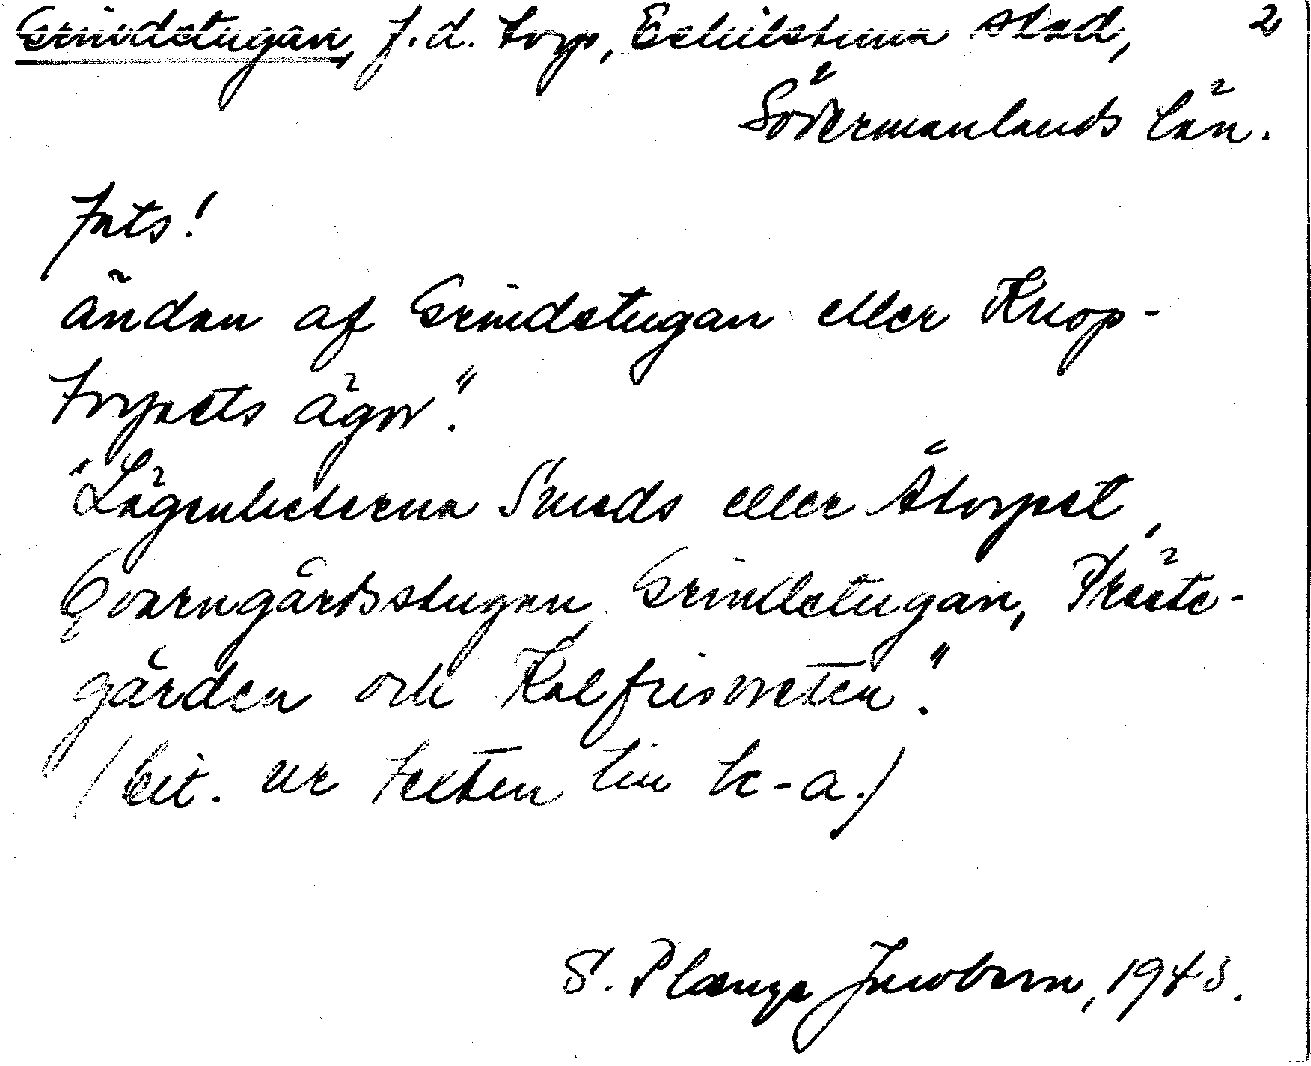 Grindstugan, f.d. torp, Eskilstuna stad, 2
Södermanlands län.
Forts!
ändan af Grindstugan eller Knop-
torpets ägor".
"Lägenheterna Smeds eller Åtorpet,
Qvarngårdsstugan, Grindstugan, Präste-
gården och Kalfrisvreten".
(Cit. ur texten till k-a.)
S. Plænge Jacobson, 1948.